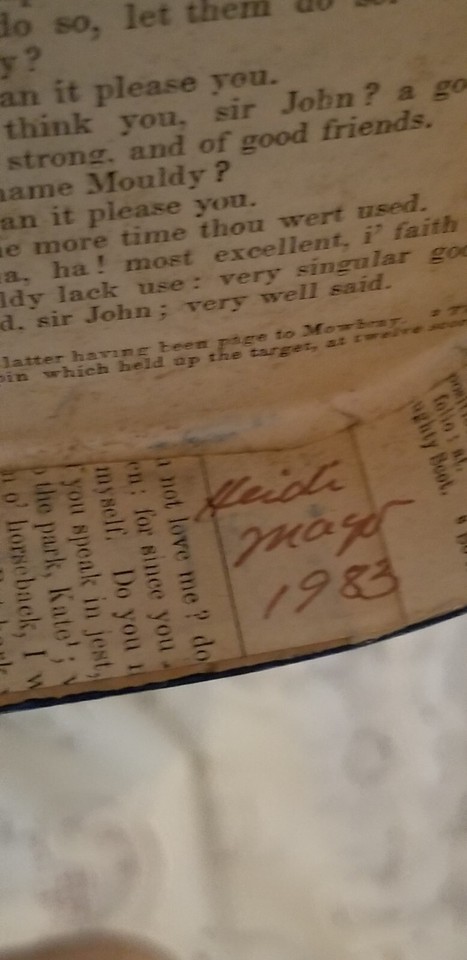 do so, let them do so.
y?
an it please you.
think you, sir John? a go
strong, and of good friends.
name Mouldy?
an it please you.
e more time thou wert used.
a, ha! most excellent, i' faith
ldy lack use: very singular goo
d, sir John; very well said.
latter having been page to Mowbray.
pin which held up the target, at
n not love me? do
en: for since you
myself. Do you
you speak in jest,
the park, Kate;
o' horseback, I w
Heidi
Mayr
1983
folio:
ughty Boot.